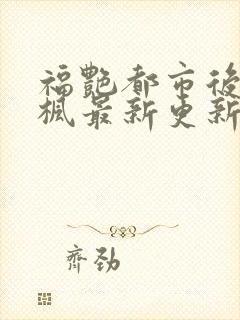 福艷都市後
楓最新更新
齊勁